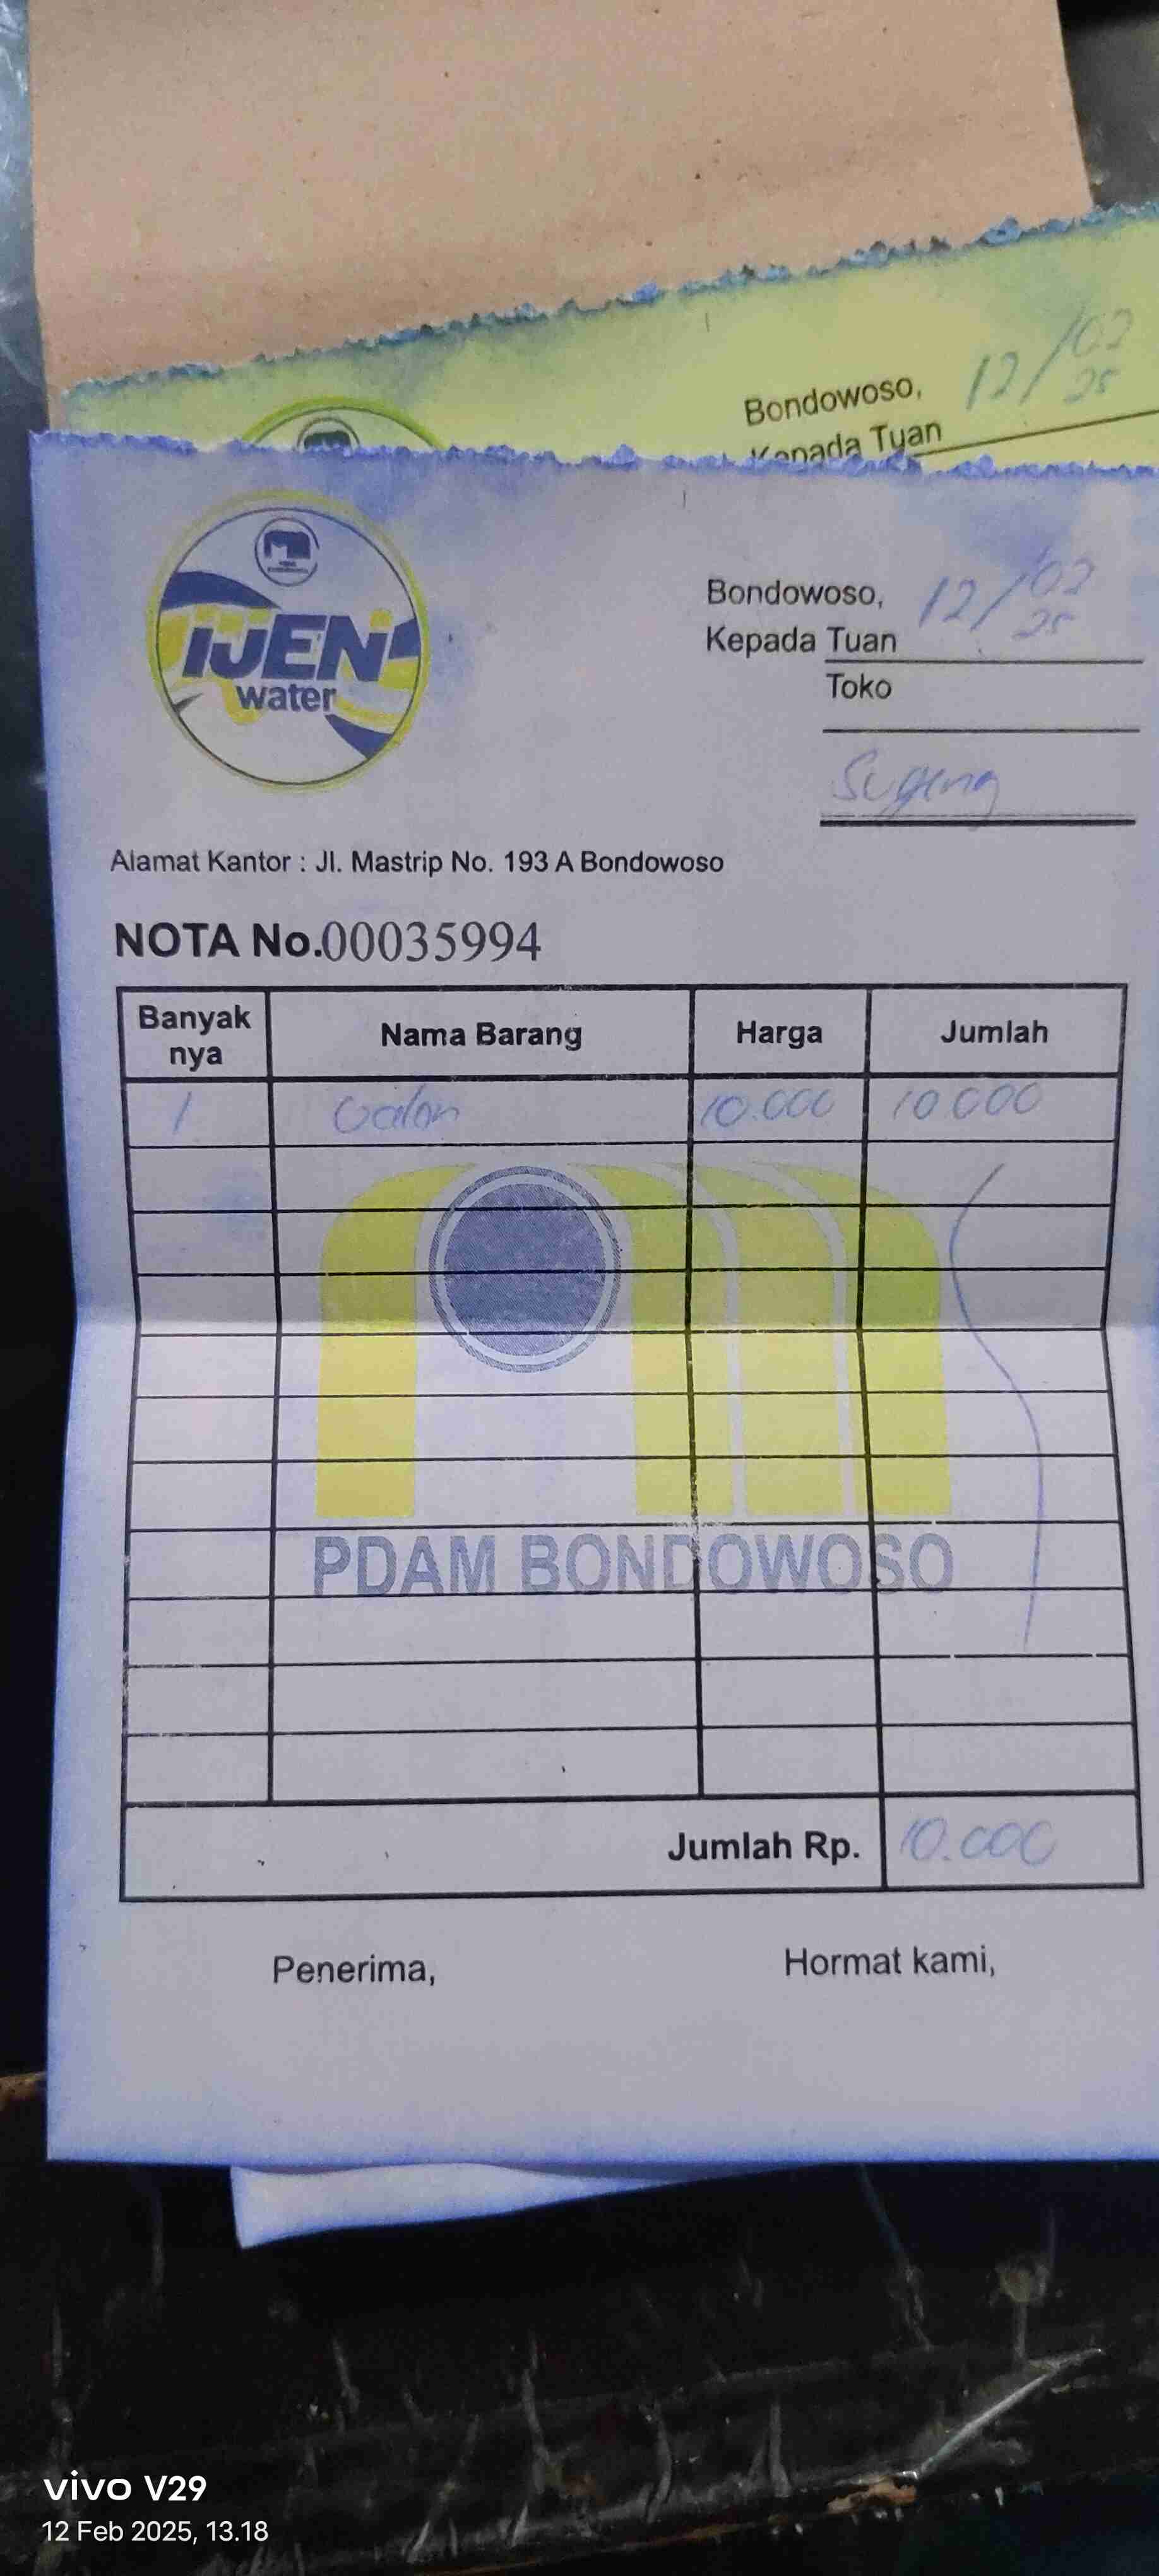 Bondowoso, 12/02 25
Kepada Tuan
IJEN
water
Bondowoso, 12/02 25
Kepada Tuan
Toko
Sugeng
Alamat Kantor : Jl. Mastrip No. 193 A Bondowoso
NOTA No.00035994
Banyak nya Nama Barang Harga Jumlah
1 Galon 10.000 10.000
PDAM BONDOWOSO
Jumlah Rp. 10.000
Penerima, Hormat kami,
vivo V29
12 Feb 2025, 13.18